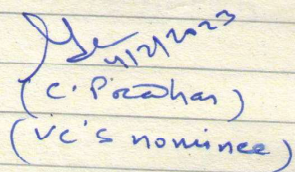 4/2/2023
(C. Pradhan)
(VC's nominee)